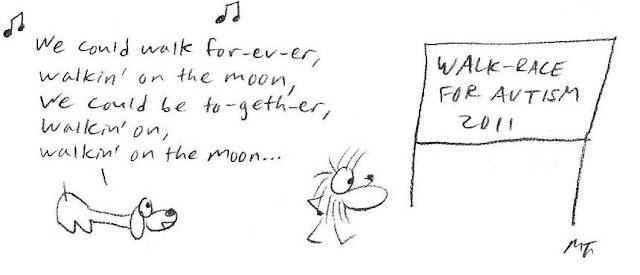 We could walk for-ev-er,
walkin' on the moon,
We could be to-geth-er,
walkin' on,
walkin' on the moon...
WALK-RACE
FOR AUTISM
2011